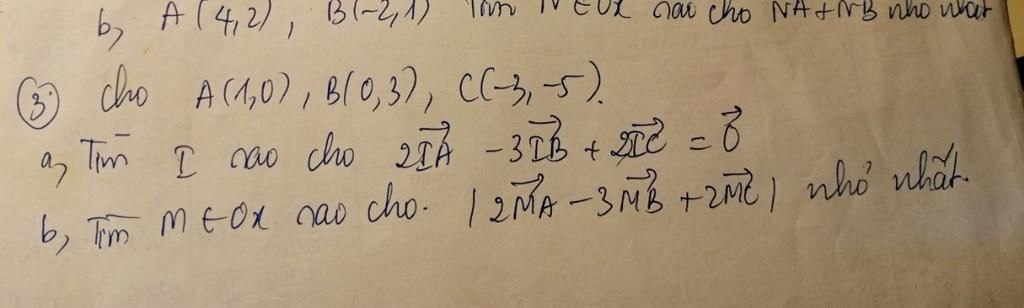 b, A(4,2), B(-2,1) Tìm N ∈ Ox sao cho NA+NB nhỏ nhất
③ cho A(1,0), B(0,3), C(-3,-5).
a, Tìm I sao cho 2\vec{IA} - 3\vec{IB} + 2\vec{IC} = \vec{0}
b, Tìm M ∈ Ox sao cho. |2\vec{MA} - 3\vec{MB} + 2\vec{MC}| nhỏ nhất.